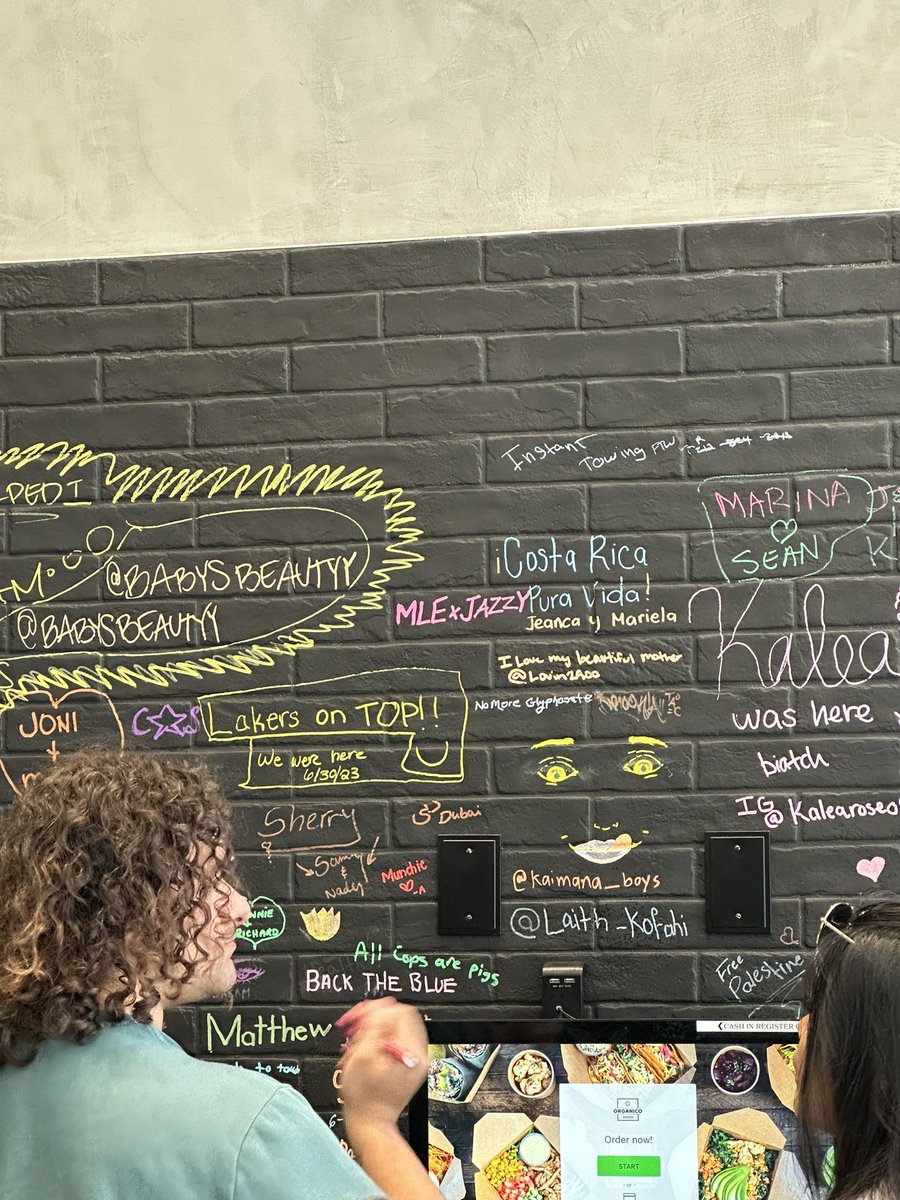 Instant Towing PTW
MARINA
SEAN
@BABYSBEAUTYY
@BABYSBEAUTYY
¡Costa Rica
Pura Vida!
Jeanca y Mariela
MLE x JAZZY
Kalea
was here
biatch
IG @Kalearose
I Love my beautiful mother
@Lovin2Aoo
No More Glyphosate
JONI
+
C☆S
Lakers on TOP!!
We were here
6/30/23
Sherry
Sammy
&
Nady
Dubai
Munchie
@kaimana_boys
@Laith_Kofahi
RICHARD
All Cops are Pigs
BACK THE BLUE
Free
Palestine
Matthew
CASH IN REGISTER
ORGANICO
Order now!
START